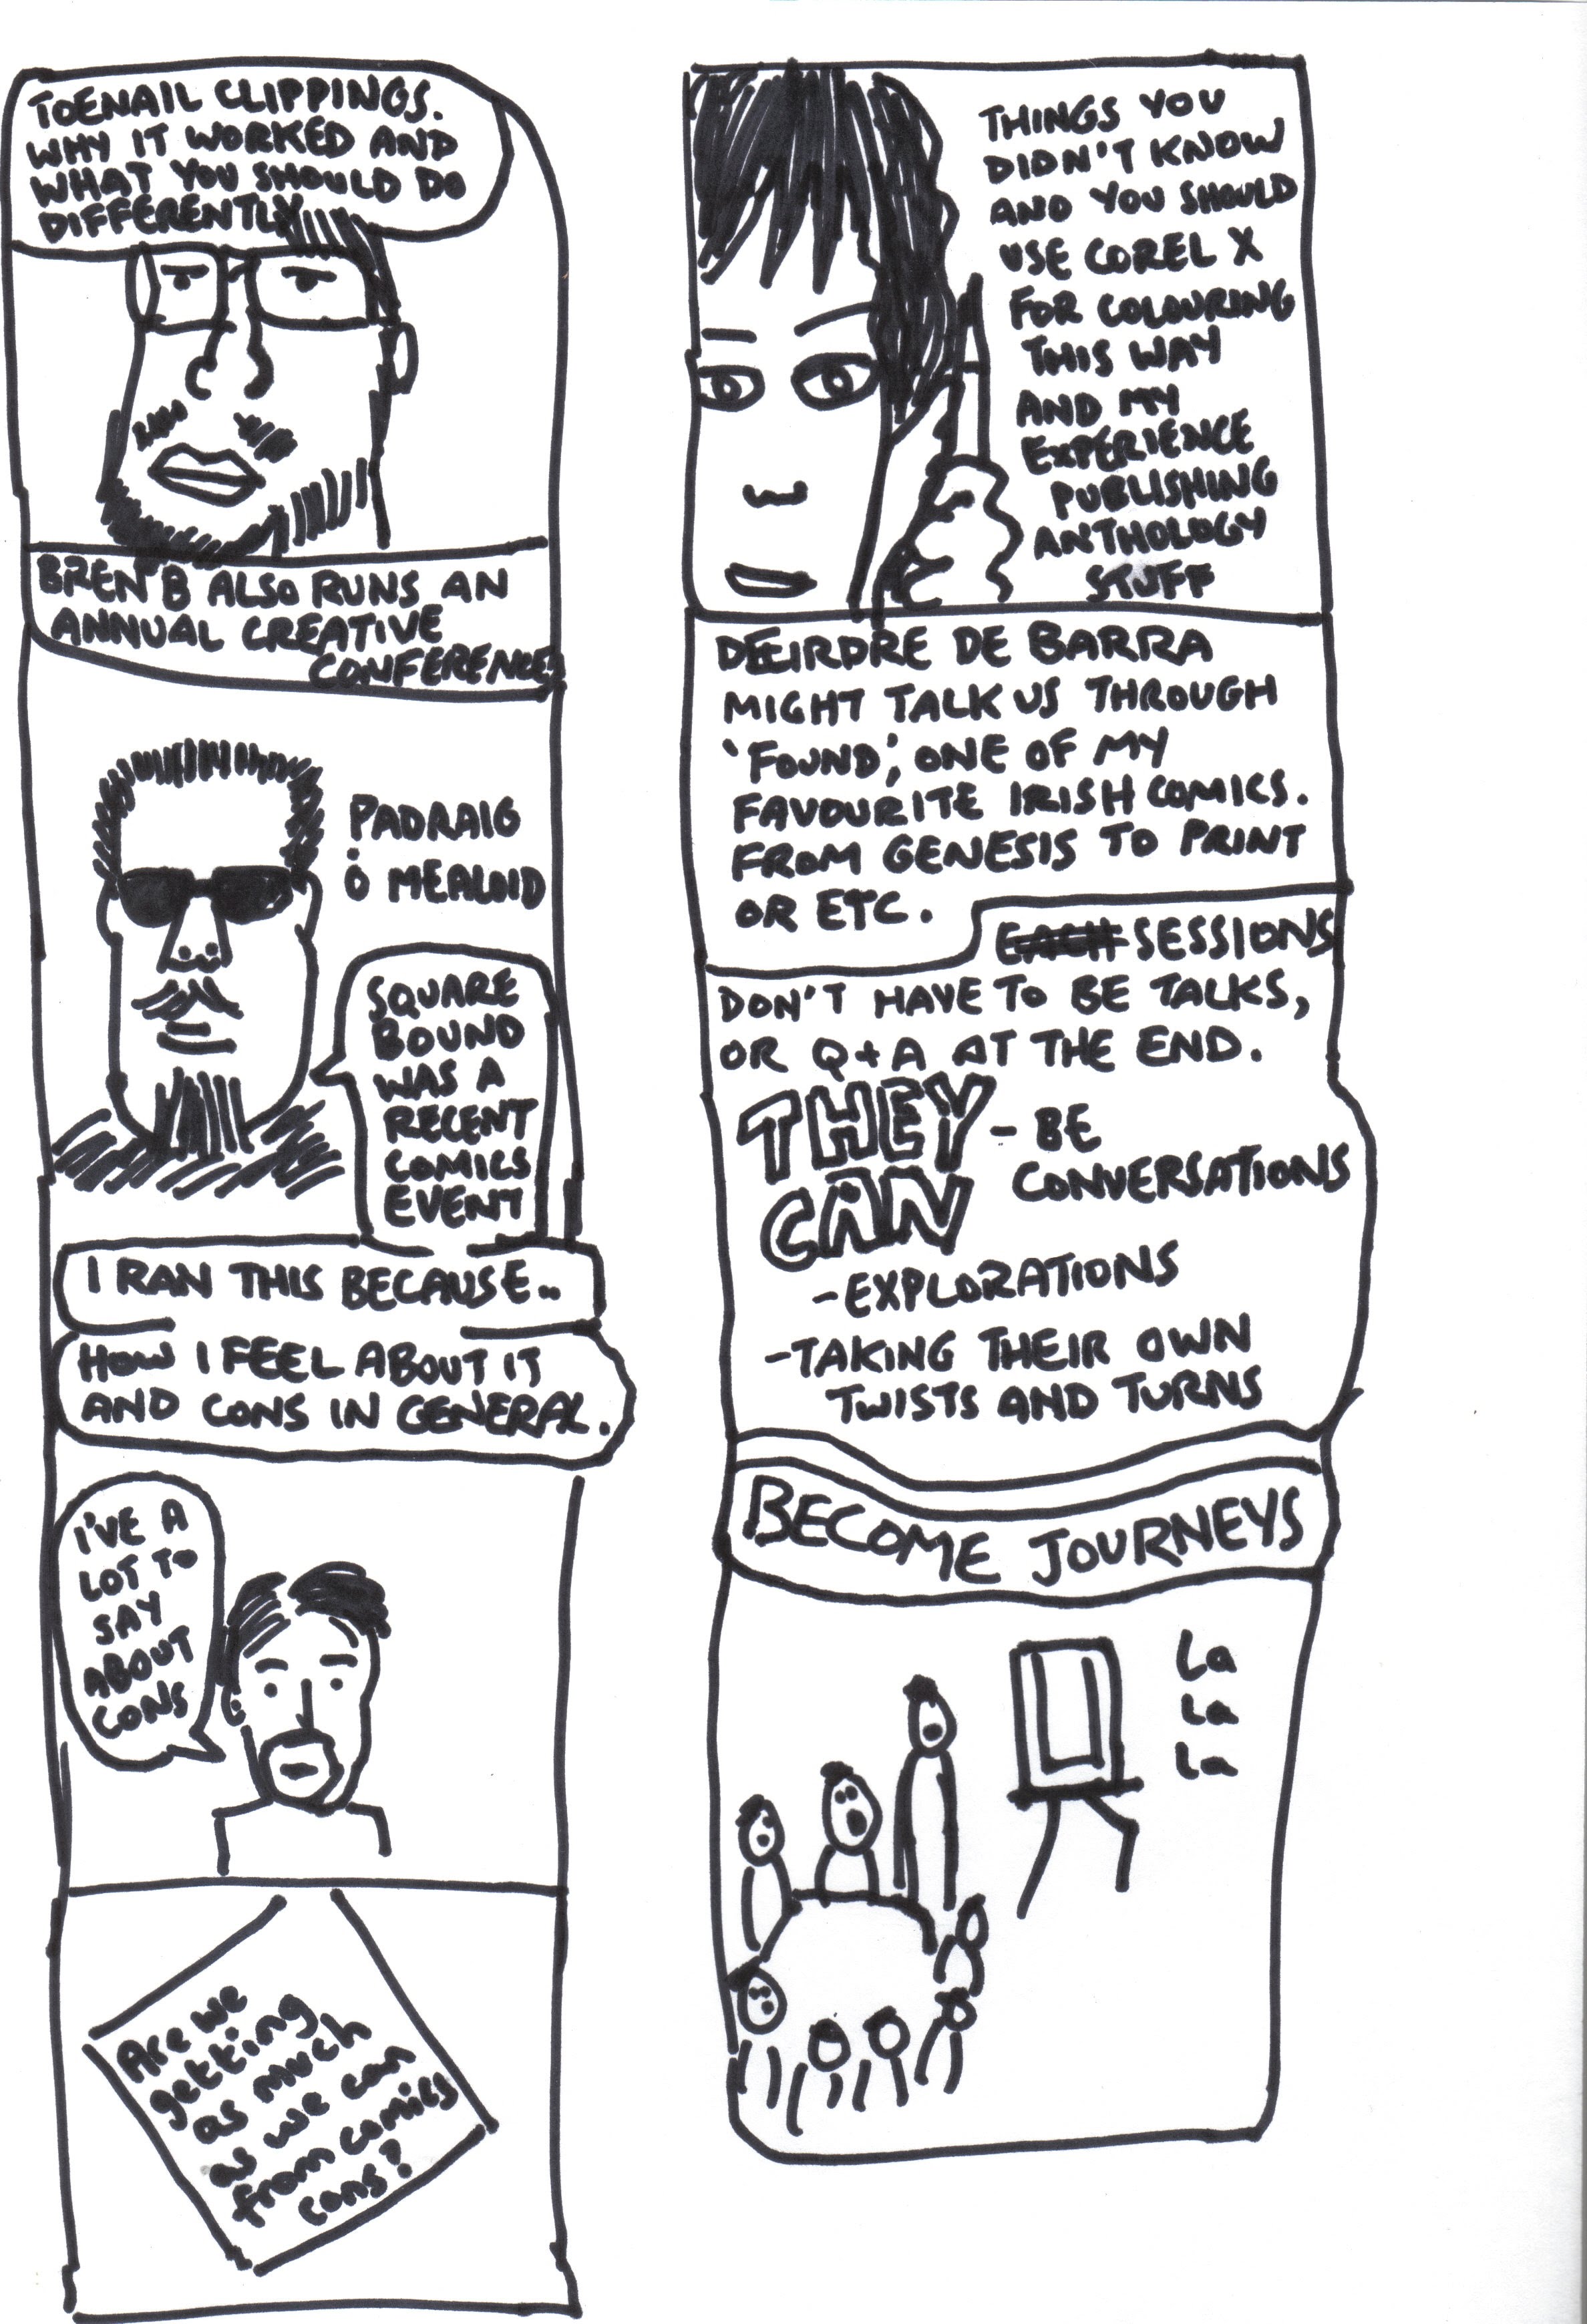 TOENAIL CLIPPINGS.
WHY IT WORKED AND
WHAT YOU SHOULD DO
DIFFERENTLY
BREN B ALSO RUNS AN
ANNUAL CREATIVE
CONFERENCE
PADRAIG
Ó MEALOID
SQUARE
BOUND
WAS A
RECENT
COMICS
EVENT
I RAN THIS BECAUSE..
HOW I FEEL ABOUT IT
AND CONS IN GENERAL.
I'VE A
LOT TO
SAY
ABOUT
CONS
Are we
getting
as much
as we can
from comics
cons?
THINGS YOU
DIDN'T KNOW
AND YOU SHOULD
USE COREL X
FOR COLOURING
THIS WAY
AND MY
EXPERIENCE
PUBLISHING
ANTHOLOGY
STUFF
DEIRDRE DE BARRA
MIGHT TALK US THROUGH
'FOUND', ONE OF MY
FAVOURITE IRISH COMICS.
FROM GENESIS TO PRINT
OR ETC.
EACH SESSIONS
DON'T HAVE TO BE TALKS,
OR Q+A AT THE END.
THEY - BE
CAN CONVERSATIONS
- EXPLORATIONS
- TAKING THEIR OWN
TWISTS AND TURNS
BECOME JOURNEYS
La
La
La